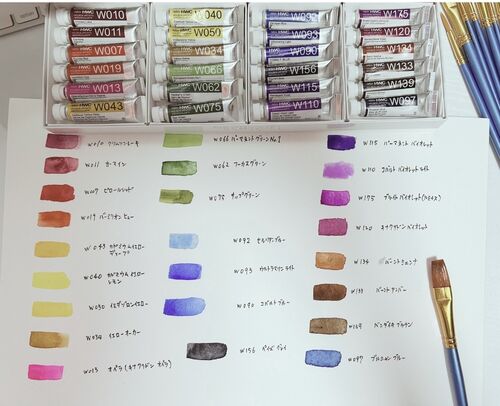 W010
W011
W007
W019
W013
W043
W040
W050
W034
W066
W062
W075
W092
W093
W090
W156
W115
W110
W175
W120
W134
W133
W139
W097
W010 クリムソンレーキ
W011 カーマイン
W007 ピロールレッド
W019 バーミリオン ヒュー
W043 カドミウムイエロー
ディープ
W040 カドミウムイエロー
レモン
W034 イエローオーカー
W013 オペラ(キナクリドン オペラ)
W066 パーマネント グリーン No.1
W062 フーカスグリーン
W075 サップグリーン
W092 セルリアンブルー
W093 ウルトラマリン ライト
W090 コバルト ブルー
W156 ペインズ グレイ
W115 パーマネント バイオレット
W110 コバルト バイオレット ライト
W175
W120 キナクリドン バイオレット
W134 バーントシェンナ
W133 バーントアンバー
バンダイキ ブラウン
W097 プルシャン ブルー